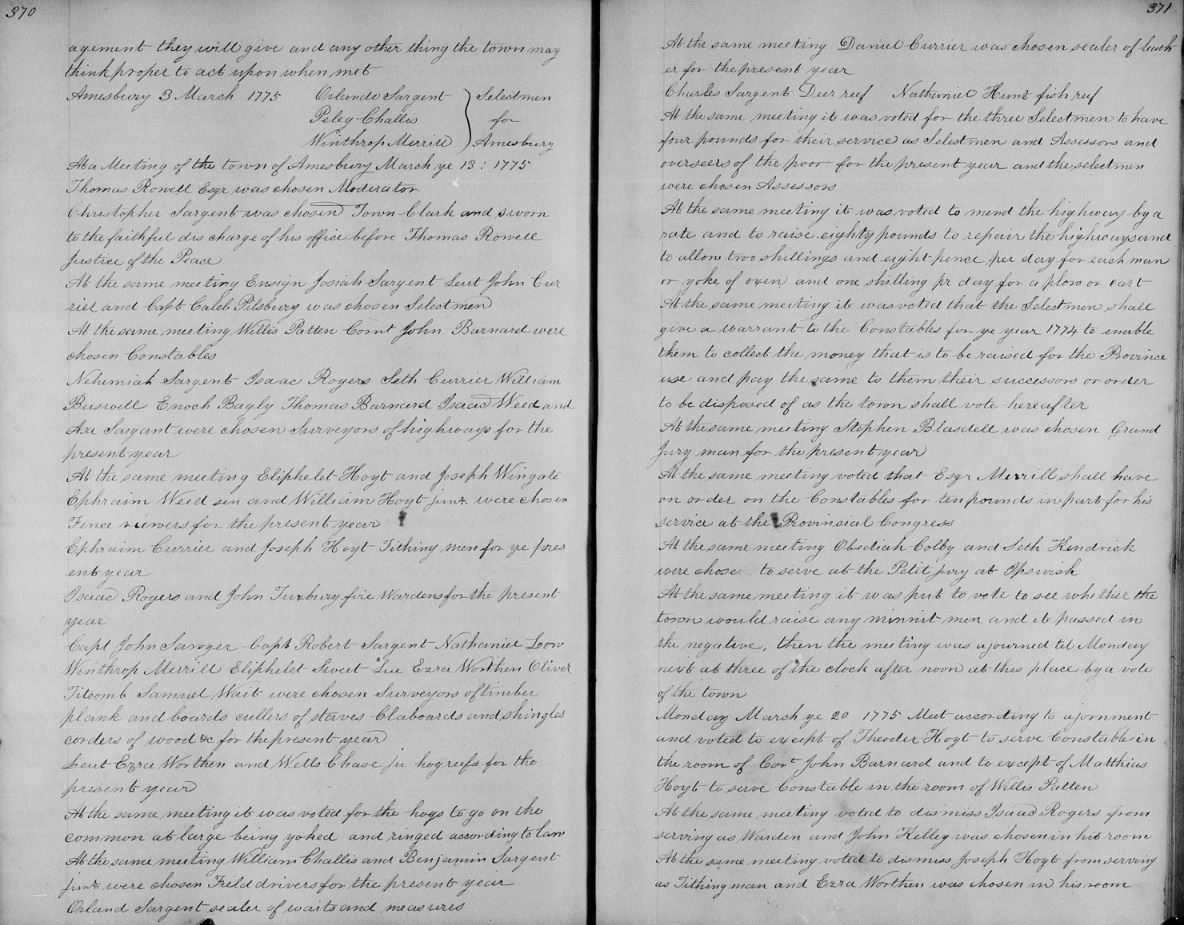 370
agement they will give and any other thing the town may
think proper to act upon when met
Amesbury 3 March 1775 Orlando Sargent } Selectmen
Peley Challis for
Winthrop Merrill Amesbury
At a Meeting of the town of Amesbury March ye 13: 1775
Thomas Rowell Esqr was chosen Moderator
Christopher Sargent was chosen Town Clark and sworn
to the faithful dis charge of his office before Thomas Rowell
Justice of the Peace
At the same meeting Ensign Josiah Sargent Leut John Cur
rier and Capt Caleb Pilsbury was chosen Selectmen
At the same meeting Willis Patten Cornt John Barnard were
chosen Constables
Nehemiah Sargent Isaac Rogers Seth Currier William
Buswell Enoch Bagly Thomas Barnard Isaac Weed and
Asa Sargant were chosen Surveyors of highways for the
present year
At the same meeting Eliphelet Hoyt and Joseph Wingate
Ephraim Weed sen and William Hoyt junr were chosen
Fence viewers for the present year
Ephraim Currier and Joseph Hoyt Tithing men for ye pres
ent year
Isaac Rogers and John Tuxbury fire Wardens for the present
year
Capt John Sawyer Capt Robert Sargent Nathaniel Low
Winthrop Merrill Eliphelet Swett Lie Ezra Worthen Oliver
Titcomb Samuel Wait were chosen Surveyors of timber
plank and boards cullers of staves Claboards and shingles
corders of wood &c for the present year
Leut Ezra Worthen and Wells Chase jr hogreifs for the
present year
At the same meeting it was voted for the hogs to go on the
common at large being yoked and ringed according to law
At the same meeting William Challis and Benjamin Sargent
junr were chosen Field drivers for the present year
Orland Sargent sealer of waits and measures
371
At the same meeting Daniel Currier was chosen sealer of leath
er for the present year
Charles Sargent Deer reef Nathaniel Hunt fish reef
At the same meeting it was voted for the three Selectmen to have
four pounds for their service as Selectmen and Assessors and
overseers of the poor for the present year and the selectmen
were chosen Assessors
At the same meeting it was voted to mend the highways by a
rate and to raise eighty pounds to repair the highways and
to allow two shillings and eight pence per day for each man
or yoke of oxen and one shilling pr day for a plow or cart
At the same meeting it was voted that the Selectmen shall
give a warrant to the Constables for ye year 1774 to enable
them to collect the money that is to be raised for the Province
use and pay the same to them their successors or order
to be disposed of as the town shall vote hereafter
At the same meeting Stephen Blasdell was chosen Grand
Jury man for the present year
At the same meeting voted that Esqr Merrill shall have
an order on the Constables for ten pounds in part for his
service at the Provinsial Congress
At the same meeting Obediah Colby and Seth Kendrick
were chose to serve at the Petit jury at Ipswich
At the same meeting it was put to vote to see whether the
town would raise any minnit men and it passed in
the negative, then the meeting was ajourned til Monday
next at three of the clock after noon at this place by a vote
of the town
Monday March ye 20 1775 Meet according to ajornment
and voted to except of Theoder Hoyt to serve Constable in
the room of Cort John Barnard and to except of Matthias
Hoyt to serve Constable in the room of Willis Patten
At the same meeting voted to dismiss Isaac Rogers from
serving as Warden and John Kelley was chosen in his room
At the same meeting voted to dismiss Joseph Hoyt from serving
as Tithing man and Ezra Worthen was chosen in his room